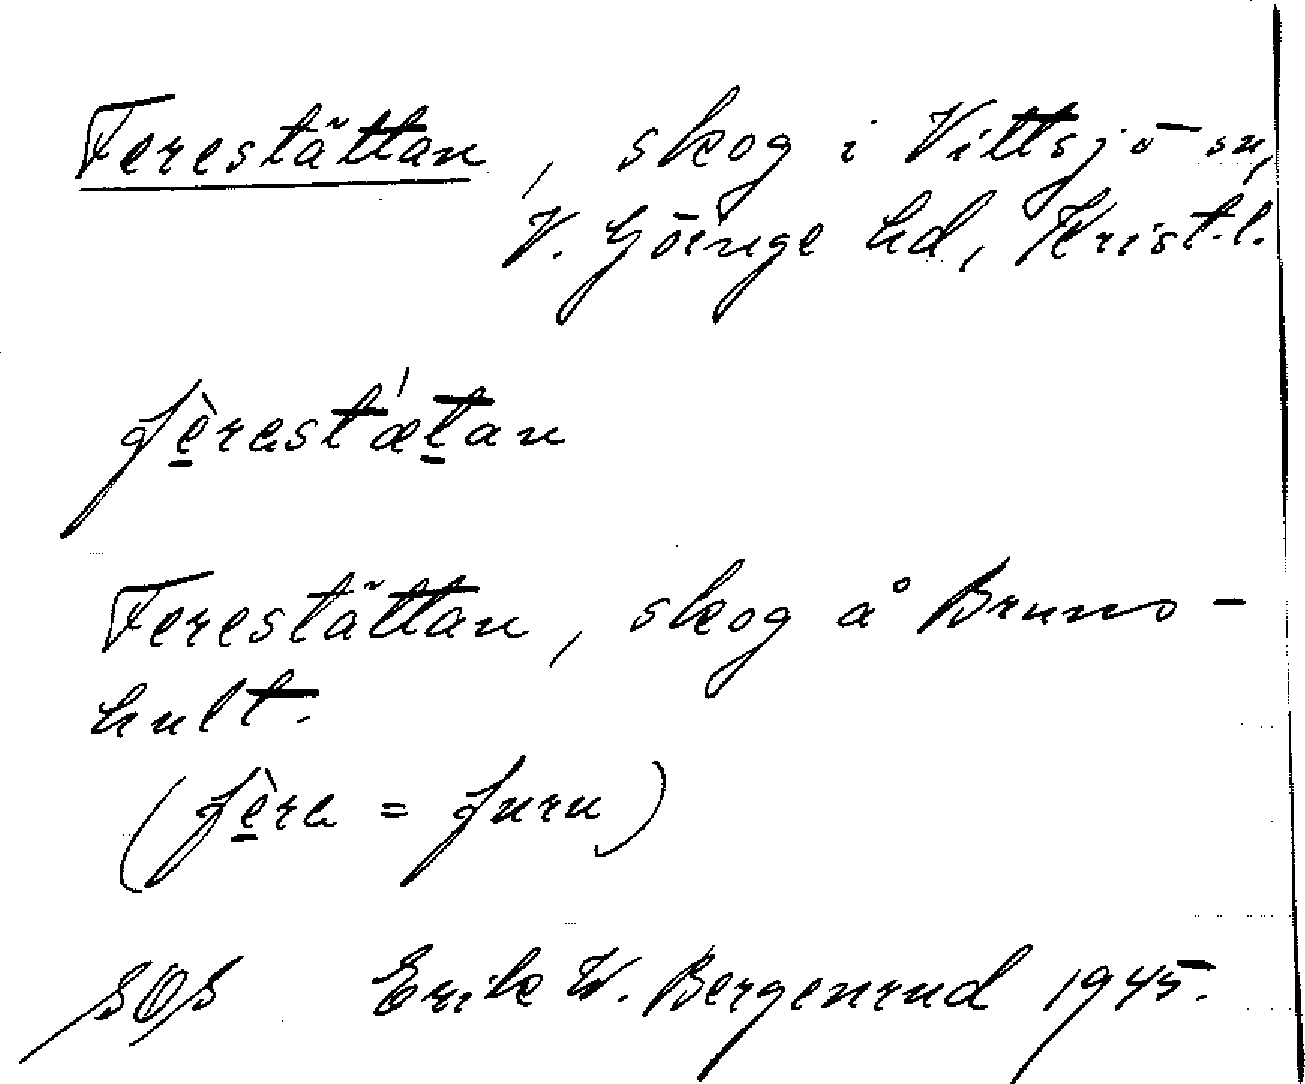 Ferestättan, skog i Vittsjö sn,
V. Göinge hd, Krist.l.
fè̱rast'æṯan
Ferestättan, skog å Bruns-
hult.
(fè̱ra = furu)
SOS Erik W. Bergenrud 1945.